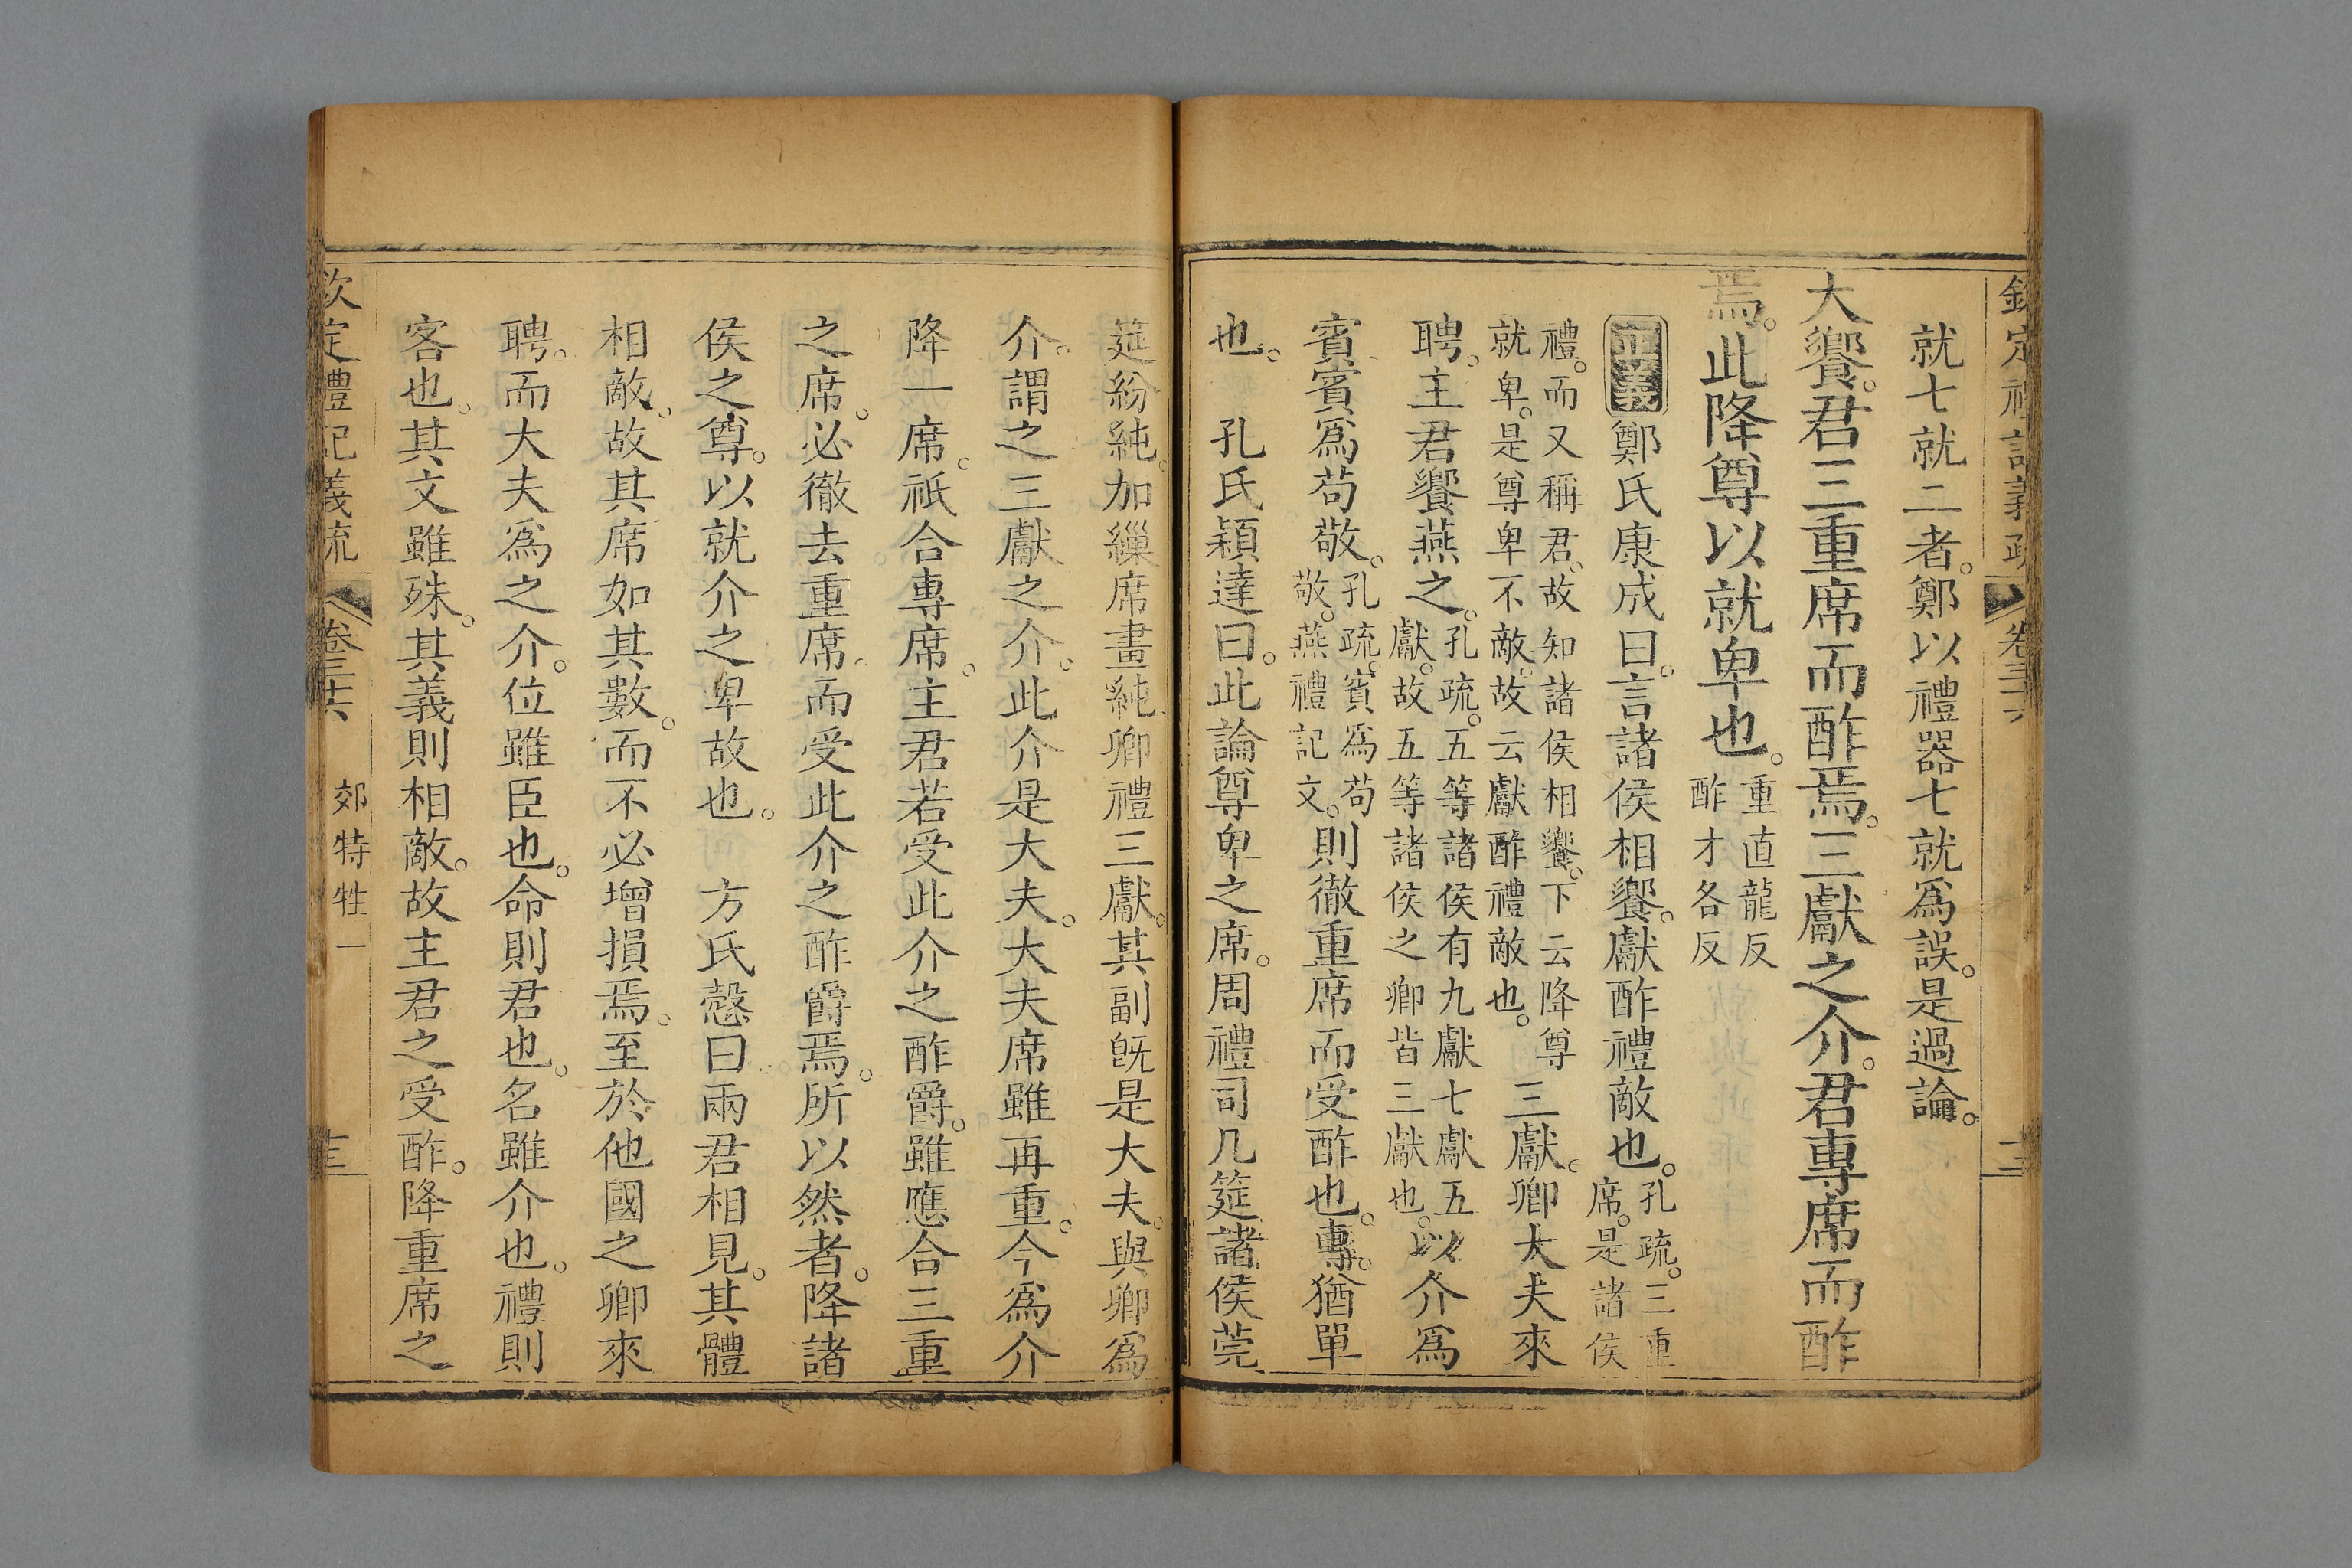 欽定禮記義疏 卷三十六 十三
就七就二者。鄭以禮器七就爲誤。是過論。
大饗。君三重席而酢焉。三獻之介。君專席而酢
焉。此降尊以就卑也。重直龍反
酢才各反
正義 鄭氏康成曰。言諸侯相饗。獻酢禮敵也。孔疏。三重
席。是諸侯
禮。而又稱君。故知諸侯相饗。下云降尊
就卑。是尊卑不敵。故云獻酢禮敵也。三獻。卿大夫來
聘。主君饗燕之。孔疏。五等諸侯有九獻七獻五
獻。故五等諸侯之卿皆三獻也。以介爲
賓。賓爲苟敬。孔疏。賓爲苟
敬。燕禮記文。則徹重席而受酢也。專。猶單
也。 孔氏穎達曰。此論尊卑之席。周禮司几筵諸侯莞
筵紛純。加繅席畫純。卿禮三獻。其副旣是大夫。與卿爲
介。謂之三獻之介。此介是大夫。大夫席雖再重。今爲介
降一席。祇合專席。主君若受此介之酢爵。雖應合三重
之席。必徹去重席。而受此介之酢爵焉。所以然者。降諸
侯之尊。以就介之卑故也。 方氏慤曰。兩君相見。其體
相敵。故其席如其數。而不必增損焉。至於他國之卿來
聘。而大夫爲之介。位雖臣也。命則君也。名雖介也。禮則
客也。其文雖殊。其義則相敵。故主君之受酢。降重席之
欽定禮記義疏 卷三十六 郊特牲一 十三